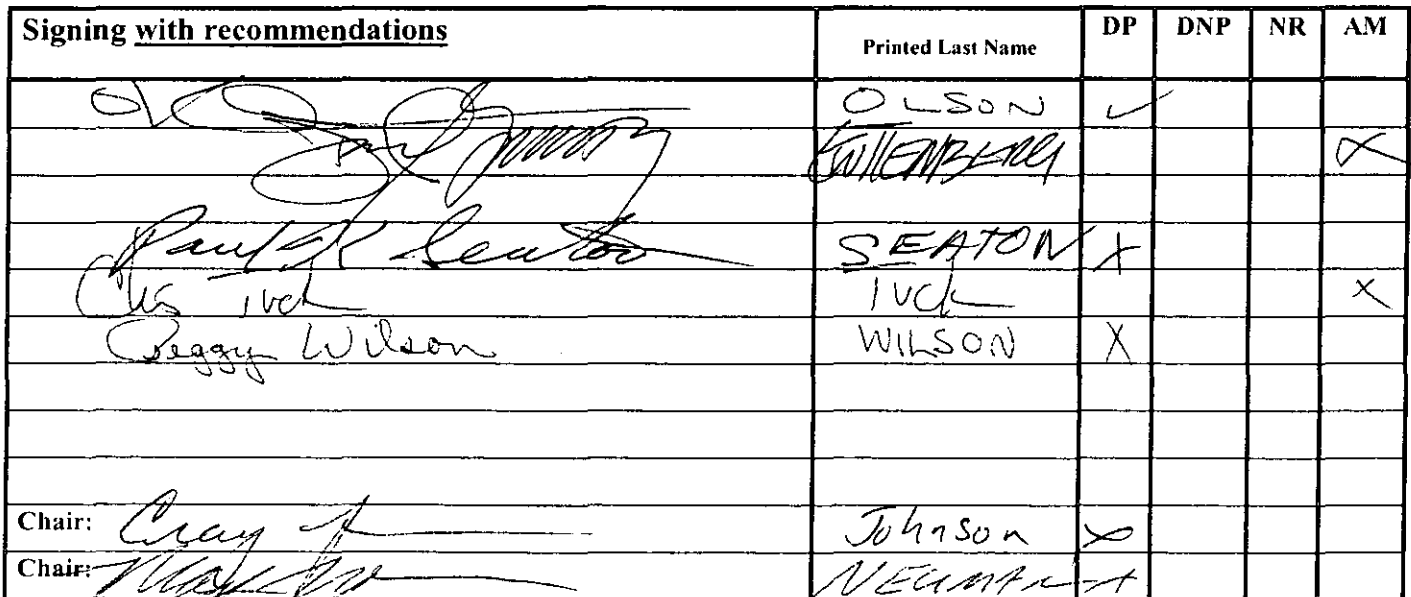 Signing with recommendations Printed Last Name DP DNP NR AM
OLSON ✓
X
Paul K Seaton SEATON X
Tuck X
Peggy Wilson WILSON X
Chair: Craig Johnson X
Chair: Mark NEUMAN X